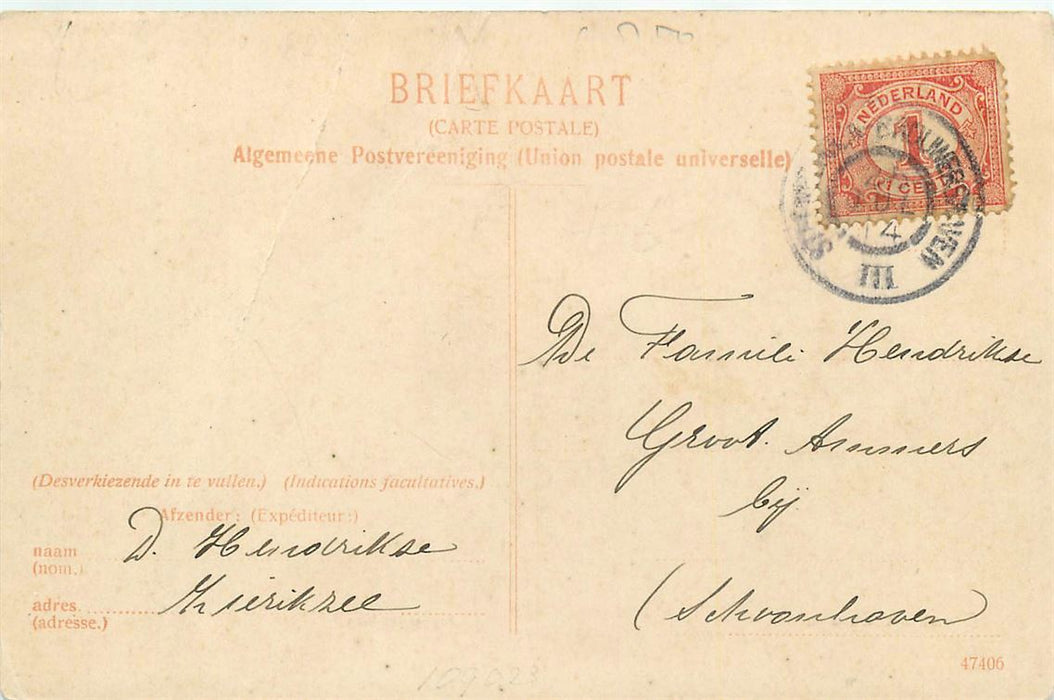 BRIEFKAART
(CARTE POSTALE)
Algemeene Postvereeniging (Union postale universelle)
NEDERLAND
1
1 CENT
BROUWERSHAVEN
14
III
De Famili Hendrikse
Groot. Ammers
bij
(Schoonhoven)
(Desverkiezende in te vullen.) (Indications facultatives.)
Afzender: (Expéditeur:)
naam D. Hendrikse
(nom.)
adres Zierikzee
(adresse.)
47406